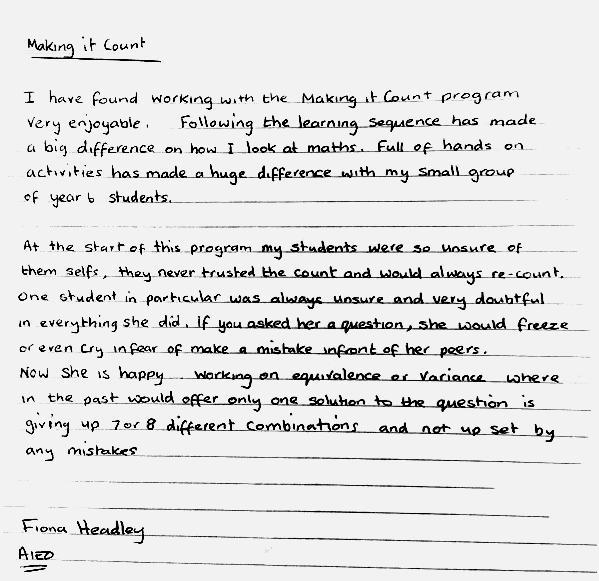 Making it Count
I have found working with the Making it Count program
very enjoyable. Following the learning sequence has made
a big difference on how I look at maths. Full of hands on
activities has made a huge difference with my small group
of year 6 students.
At the start of this program my students were so unsure of
them selfs, they never trusted the count and would always re-count.
One student in particular was always unsure and very doubtful
in everything she did. If you asked her a question, she would freeze
or even cry in fear of make a mistake infront of her peers.
Now she is happy working on equivalence or variance where
in the past would offer only one solution to the question is
giving up 7 or 8 different combinations and not up set by
any mistakes
Fiona Headley
AIED